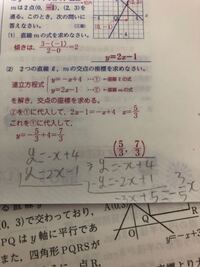 m は2点(0, −1), (2, 3)を通る。このとき, 次の問いに答えなさい。
(1) 直線mの式を求めなさい。
傾きは, 3−(−1)/2−0=2
y=2x−1
(2) 2つの直線ℓ, mの交点の座標を求めなさい。
連立方程式 { y=−x+4 …① ←直線ℓの式
y=2x−1 …② ←直線mの式
を解き, 交点の座標を求める。
②を①に代入して, 2x−1=−x+4 x=5/3
これを①に代入して,
y=−5/3+4=7/3
(5/3, 7/3)
y=−x+4
y=2x−1
y=−x+4
−y=−2x+1
−3x+5
0, 3)で交わっており,
PQはy軸に平行であ
また, 四角形PQRSが
y=−x+